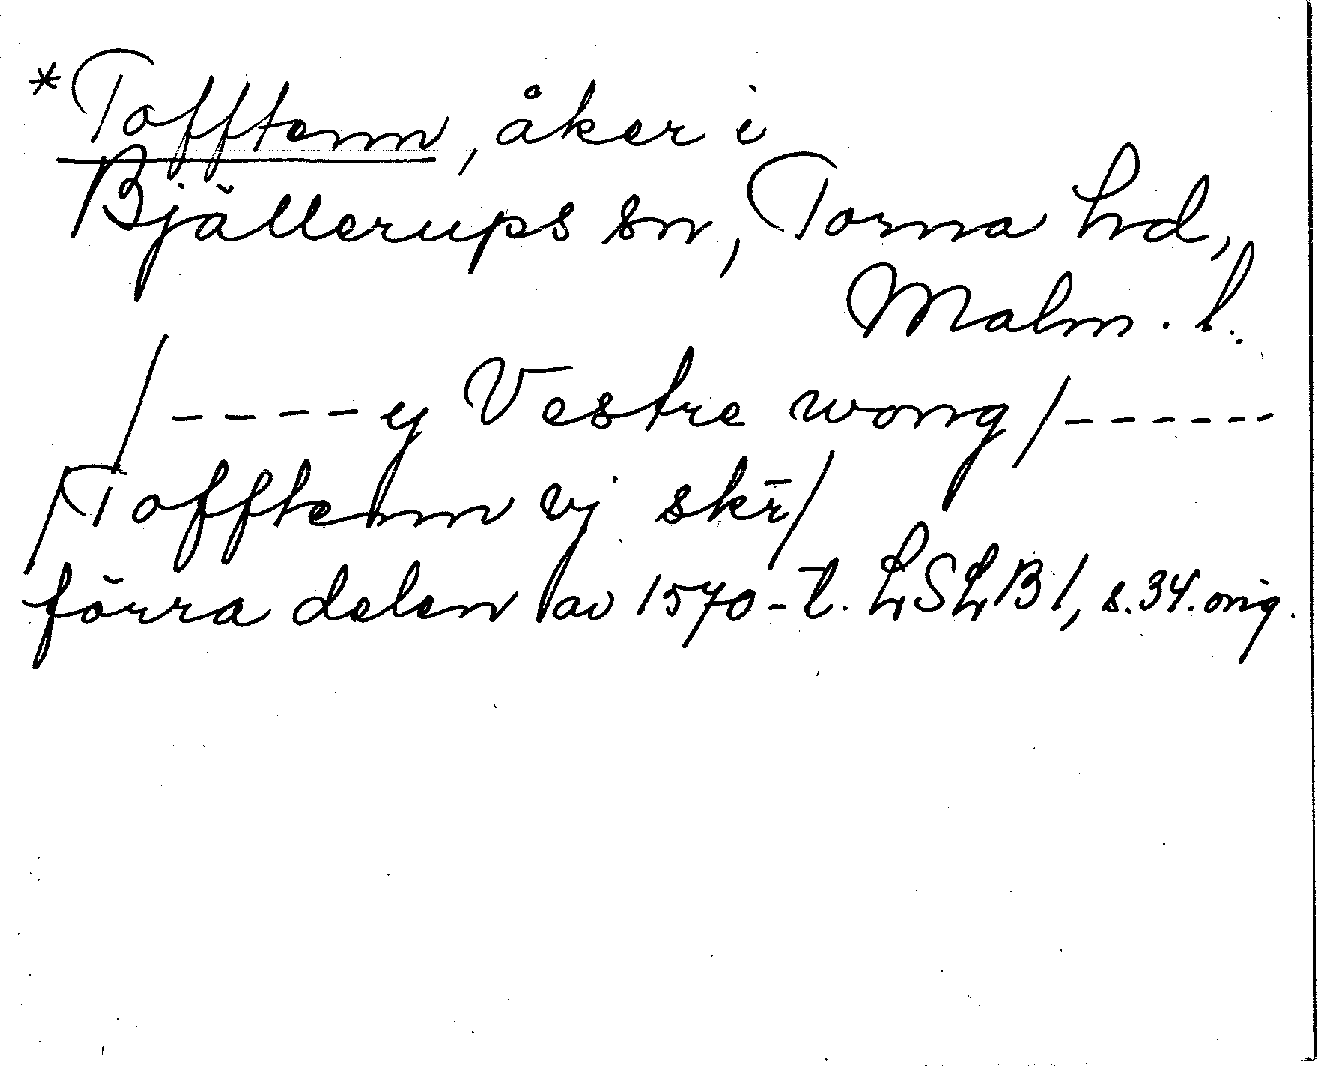 *Tofftenn, åker i
Bjällerups sn, Torna hd,
Malm. l.
/----ej Vestre wong/------
/Tofftenn vj skr̄/
förra delen av 1570-t. LSLB 1, s.34. orig.